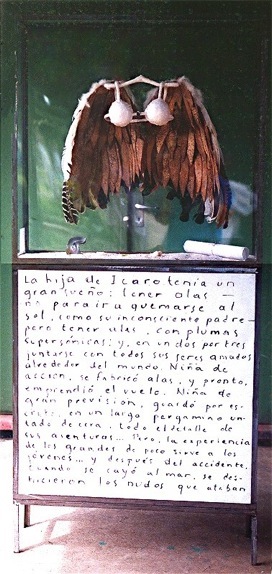 La hija de Icaro tenía un
gran sueño: tener alas —
no para ir a quemarse al
sol, como su inconsciente padre —
pero tener alas, con plumas
supersónicas; y, en un dos por tres
juntarse con todos sus seres amados
alrededor del mundo. Niña de
acción, se fabricó alas, y pronto,
emprendió el vuelo. Niña de
gran previsión, guardó por es-
crito, en un largo pergamino un-
tado de cera, todo el detalle de
sus aventuras... Pero, la experiencia
de los grandes de poco sirve a los
jóvenes... y después del accidente,
cuando se cayó al mar, se des-
hicieron los nudos que ataban